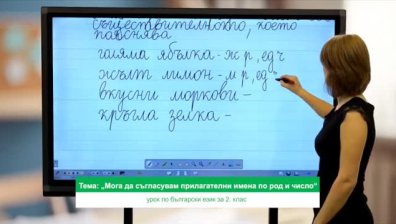 съществителното, което
пояснява
голяма ябълка - ж р, ед ч
жълт лимон - м р, ед
вкусни моркови -
кръгла зелка -
Тема: „Мога да съгласувам прилагателни имена по род и число"
урок по български език за 2. клас